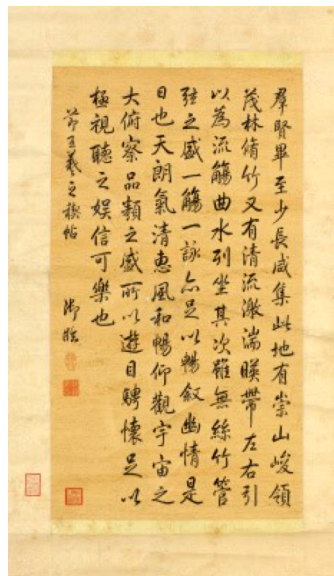 羣賢畢至少長咸集此地有崇山峻領
茂林脩竹又有清流激湍暎帶左右引
以為流觴曲水列坐其次雖無絲竹管
弦之盛一觴一詠亦足以暢叙幽情是
日也天朗氣清惠風和暢仰觀宇宙之
大俯察品類之盛所以遊目騁懷足以
極視聽之娱信可樂也
節王羲之稧帖 御臨